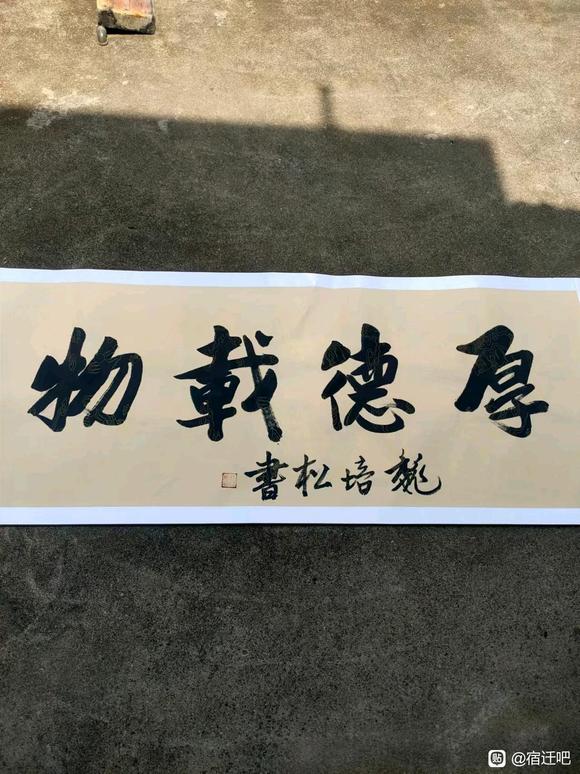 厚德載物
魏培松書
贴 @宿迁吧